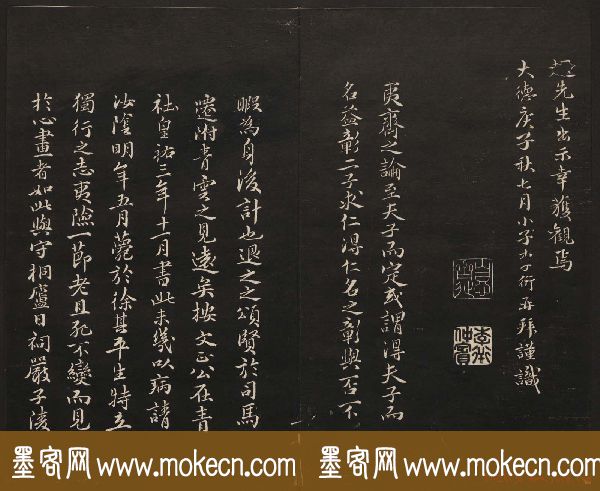 趙先生出示幸獲觀焉
大德庚子秋七月小子行再拜謹識
夷齊之論至夫子而定或謂得夫子而
名益彰二子求仁得仁名之彰與否不
暇為身後計也退之之頌賢於司馬
遷附青雲之見遠矣按文正公在青
社皇祐三年十一月書此未幾以病請
汝陰明年五月薨於徐其平生特立
獨行之志夷險一節老且死不變而見
於心畫者如此與守桐廬日祠嚴子陵
墨客网 www.mokecn.com 墨客网 www.mokecn.com